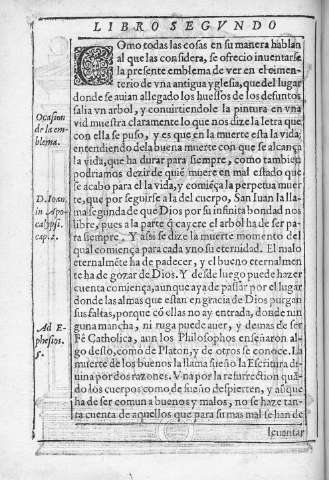 LIBRO SEGVNDO
COmo todas las cosas en su manera hablan
al que las considera, se ofrecio inuentarse
la presente emblema de ver en el cimen-
terio de vna antigua yglesia, que del lugar
donde se auian allegado los huessos de los defuntos
salia vn arbol, y conuirtiendole la pintura en vna
vid muestra claramente lo que nos dize la letra que
con ella se puso, y es que en la muerte esta la vida,
entendiendo dela buena muerte con que se alcança
la vida, que ha durar para siempre, como tambien
podriamos dezir de quiē muere en mal estado que
se acabo para el la vida, y comiēça la perpetua muer
te, que por seguirse a la del cuerpo, San Iuan la lla-
ma segunda de que Dios por su infinita bondad nos
libre, pues a la parte q̄ cayere el arbol ha de ser pa-
ra siempre. Y assi se dize la muerte momento del
qual comiença para cada vno su eternidad. El malo
eternalmēte ha de padecer, y el bueno eternalmen
te ha de gozar de Dios. Y desde luego puede hazer
cuenta comiença, aunque aya de passar por el lugar
donde las almas que estan en gracia de Dios purgan
sus faltas, porque cō ellas no ay entrada, donde nin
guna mancha, ni ruga puede auer, y demas de ser
Fè Catholica, aun los Philosophos enseñaron al-
go desto, como de Platon, y de otros se conoce. La
muerte de los buenos la llama sueño la Escritura di
uina por dos razones. Vna por la resurrection quā-
do los cuerpos como de sueño despierten, y aūque
ha de ser comun a buenos y malos, no se haze tan-
ta cuenta de aquellos que para su mas mal se han de
leuantar
Ocasion
de la em-
blema.
D. Ioan.
in Apo-
calypsi.
cap. 2.
Ad E-
phesios.
5.